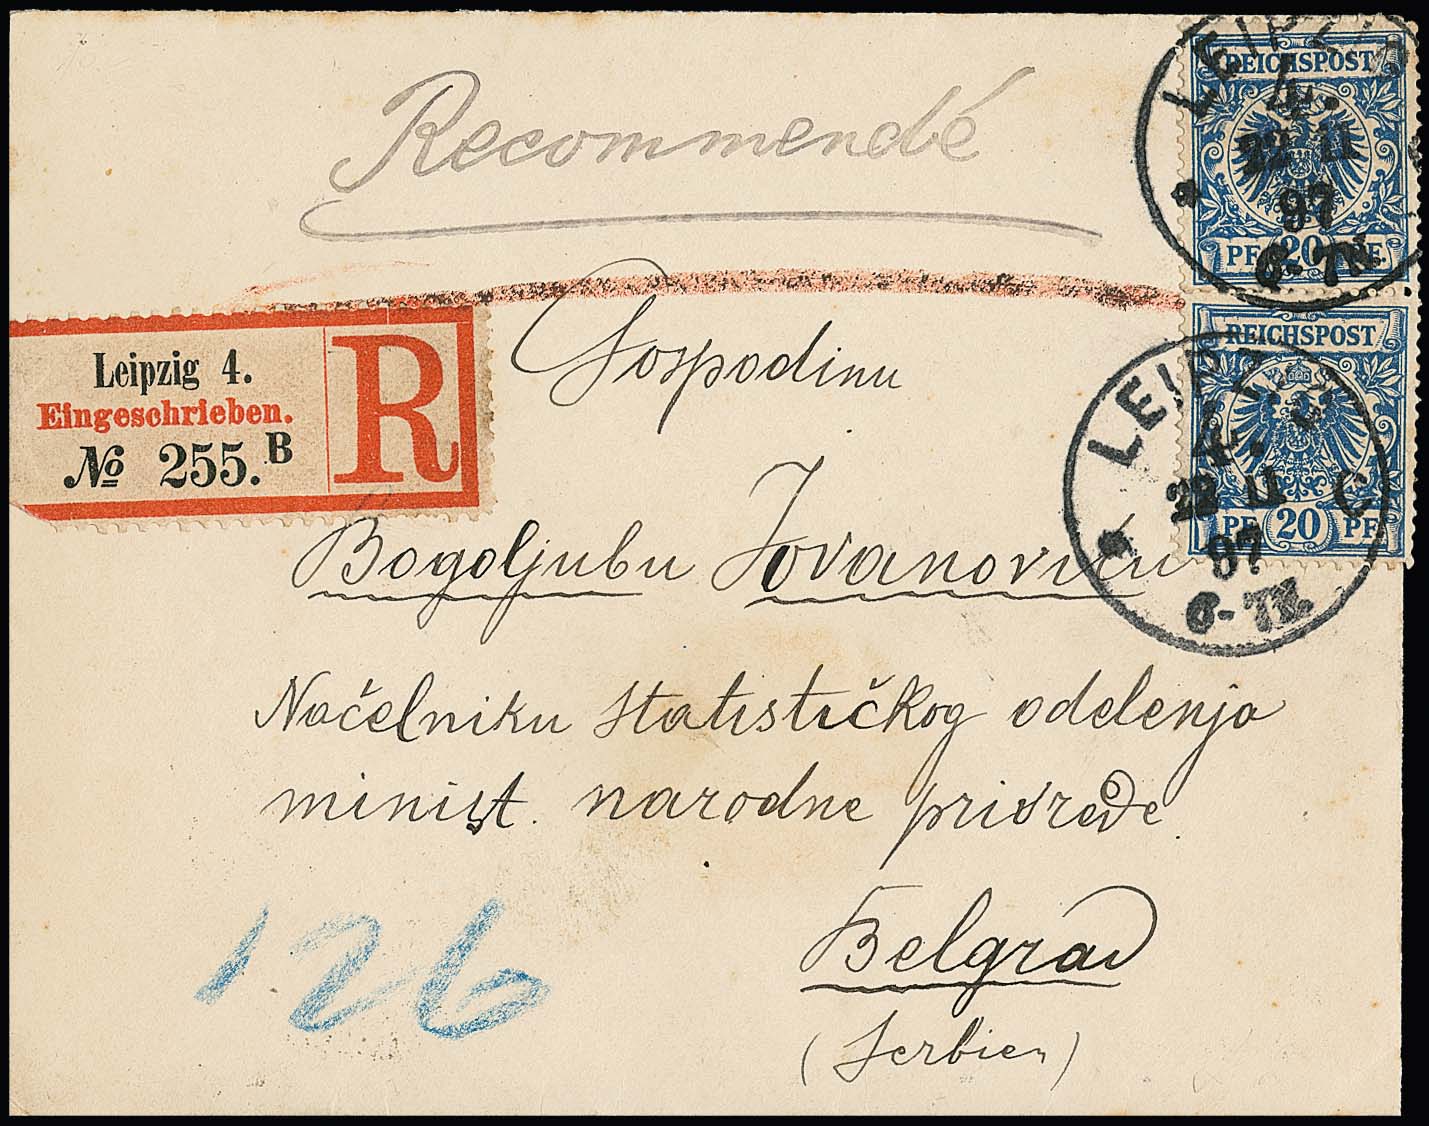 Recommendé
REICHSPOST
PF. 20 PF.
LEIPZIG
4.
22 11
97
6-7N.
Leipzig 4.
Eingeschrieben.
№ 255.B
R
REICHSPOST
PF. 20 PF.
LEIPZIG
4.
22 11 C
97
6-7N.
Gospodinu
Bogoljubu Jovanoviću
Načelniku statističkog odelenja
minist. narodne privrede
126
Belgrad
(Serbien)